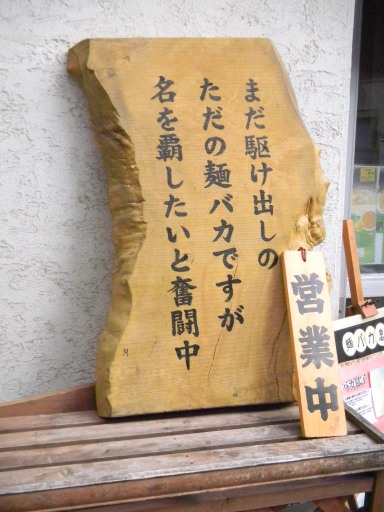 まだ駆け出しの
ただの麺バカですが
名を覇したいと奮闘中
営業中
麺バカ息